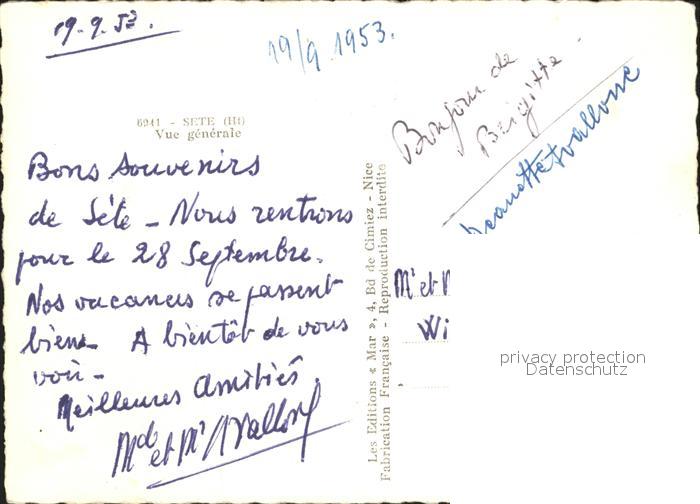 19-9.53.
19/9 1953.
6941 - SETE (Hlt)
Vue générale
Bons souvenirs
de Séte - Nous rentrons
pour le 28 Septembre.
Nos vacances se passent
bien - A bientôt de vous
voir -
Meilleures amitiés.
Md et Mr Avallone
Bonjour de
Brigitte
Jeanette Avallone
Les Editions « Mar », 4, Bd de Cimiez - Nice
Fabrication Française - Reproduction interdite
Mr et M
Wi
privacy protection
Datenschutz